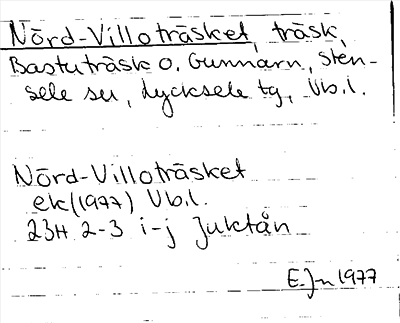 Nörd-Villoträsket, träsk,
Bastuträsk o. Gunnarn, Sten-
sele sn, Lycksele tg, Vb.l.
Nörd-Villoträsket
ek(1977) Vb.l.
23H 2-3 i-j Juktån
E.Jn 1977